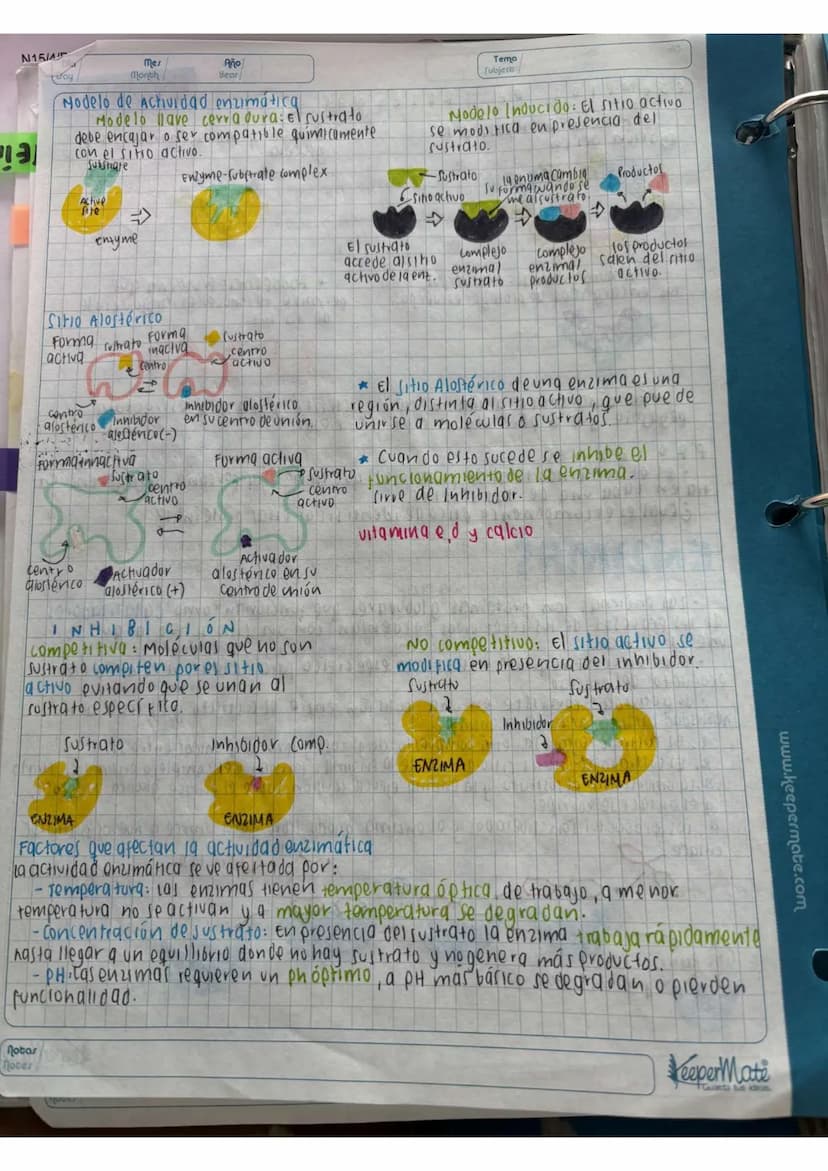 Mes
Month
Año
Year
Tema
Subject
Modelo de Actividad enzimática
Modelo llave cerradura: El sustrato
debe encajar o ser compatible químicamente
con el sitio activo.
Substrate
Active
Site
enzyme
Enzyme-Substrate complex
Modelo Inducido: El sitio activo
se modifica en presencia del
sustrato.
Sustrato
Sitio activo
la enzima cambia
su forma cuando se
une al sustrato
Productos
El sustrato
accede al sitio
activo de la ent.
complejo
enzima/
sustrato
complejo
enzima/
productos
los productos
salen del sitio
activo.
Sitio Alostérico
Forma
activa
sustrato
centro
Forma
inactiva
sustrato
centro
activo
centro
alostérico
Inhibidor
alostérico(-)
Inhibidor alostérico
en su centro de unión.
Forma innactiva
sustrato
centro
activo
Forma activa
sustrato
centro
activo
centro
alostérico
Activador
alostérico (+)
Activador
alostérico en su
centro de unión
★ El sitio Alostérico de una enzima es una
región, distinta al sitio activo, que puede
unirse a moléculas o sustratos.
★ Cuando esto sucede se inhibe el
funcionamiento de la enzima.
sirve de Inhibidor.
vitamina e, d y calcio
INHIBICIÓN
competitiva: Moléculas que no son
sustrato compiten por el sitio
activo evitando que se unan al
sustrato específico.
Sustrato
ENZIMA
Inhibidor Comp.
ENZIMA
No competitivo: El sitio activo se
modifica en presencia del inhibidor.
Sustrato
ENZIMA
Sustrato
Inhibidor
ENZIMA
Factores que afectan la actividad enzimática
la actividad enzimática se ve afectada por:
- Temperatura: Las enzimas tienen temperatura óptica de trabajo, a menor
temperatura no se activan y a mayor temperatura se degradan.
- Concentración de sustrato: En presencia del sustrato la enzima trabaja rápidamente
hasta llegar a un equilibrio donde no hay sustrato y no genera más productos.
- PH: Las enzimas requieren un ph óptimo, a pH más básico se degradan o pierden
funcionalidad.
Notas
Notes
KeeperMate
www.keepermate.com